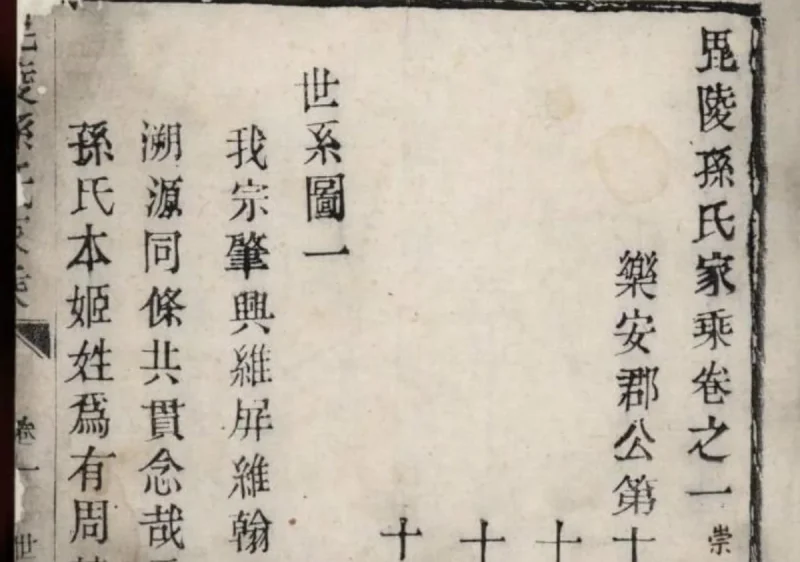 毘陵孫氏家乘卷之一 崇
樂安郡公第十
十
十
十
世系圖一
我宗肇興維屏維翰
溯源同條共貫念哉
孫氏本姬姓爲有周
陵孫氏家乘 卷一 世